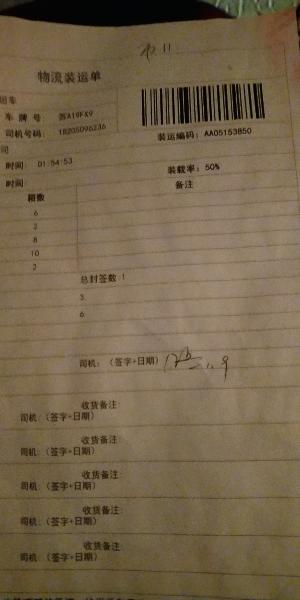 物流装运单
运车
车 牌 号 苏A19FX9
司机号码: 18205096236
装运编码: AA05153850
司
时间: 01:54:53
装载率: 50%
时间:
备注
箱数
6
2
8
10
2
总封签数:
3
6
司机: (签字+日期)
收货备注:
司机: (签字+日期)
收货备注:
司机: (签字+日期)
收货备注:
司机: (签字+日期)
收货备注:
司机: (签字+日期)
收货备注:
司机: (签字+日期)